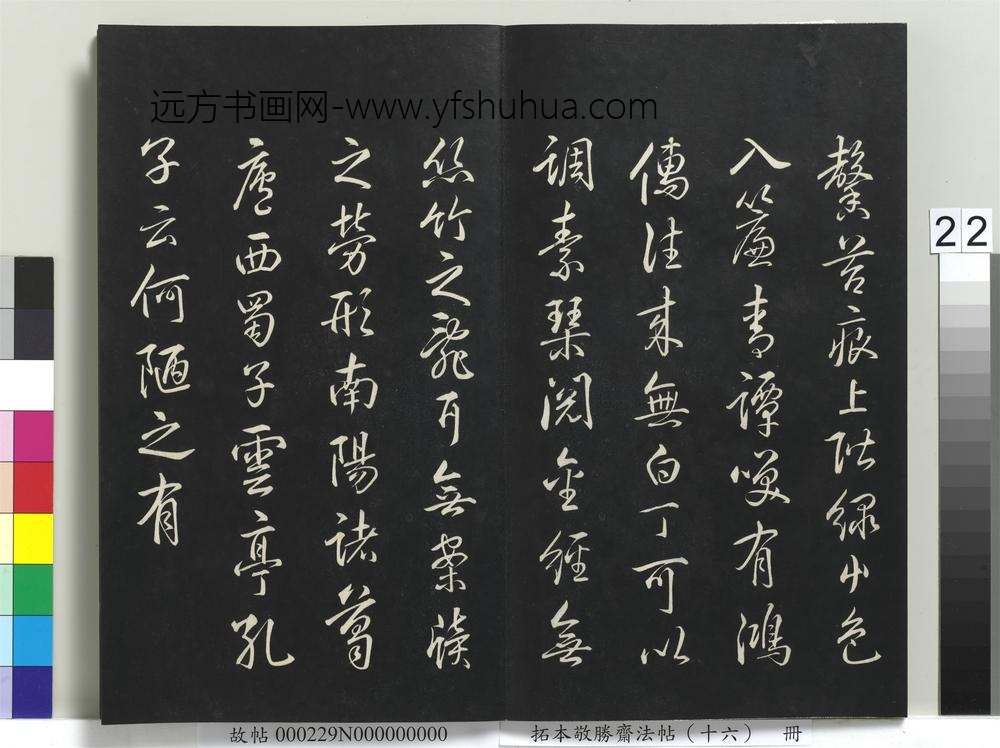 远方书画网-www.yfshuhua.com
馨苔痕上階綠草色
入簾青譚咲有鴻
儒往來無白丁可以
調素琴閱金經無
絲竹之亂耳無案牘
之勞形南陽諸葛
廬西蜀子雲亭孔
子云何陋之有
22
故帖 000229N000000000
拓本敬勝齋法帖（十六） 冊